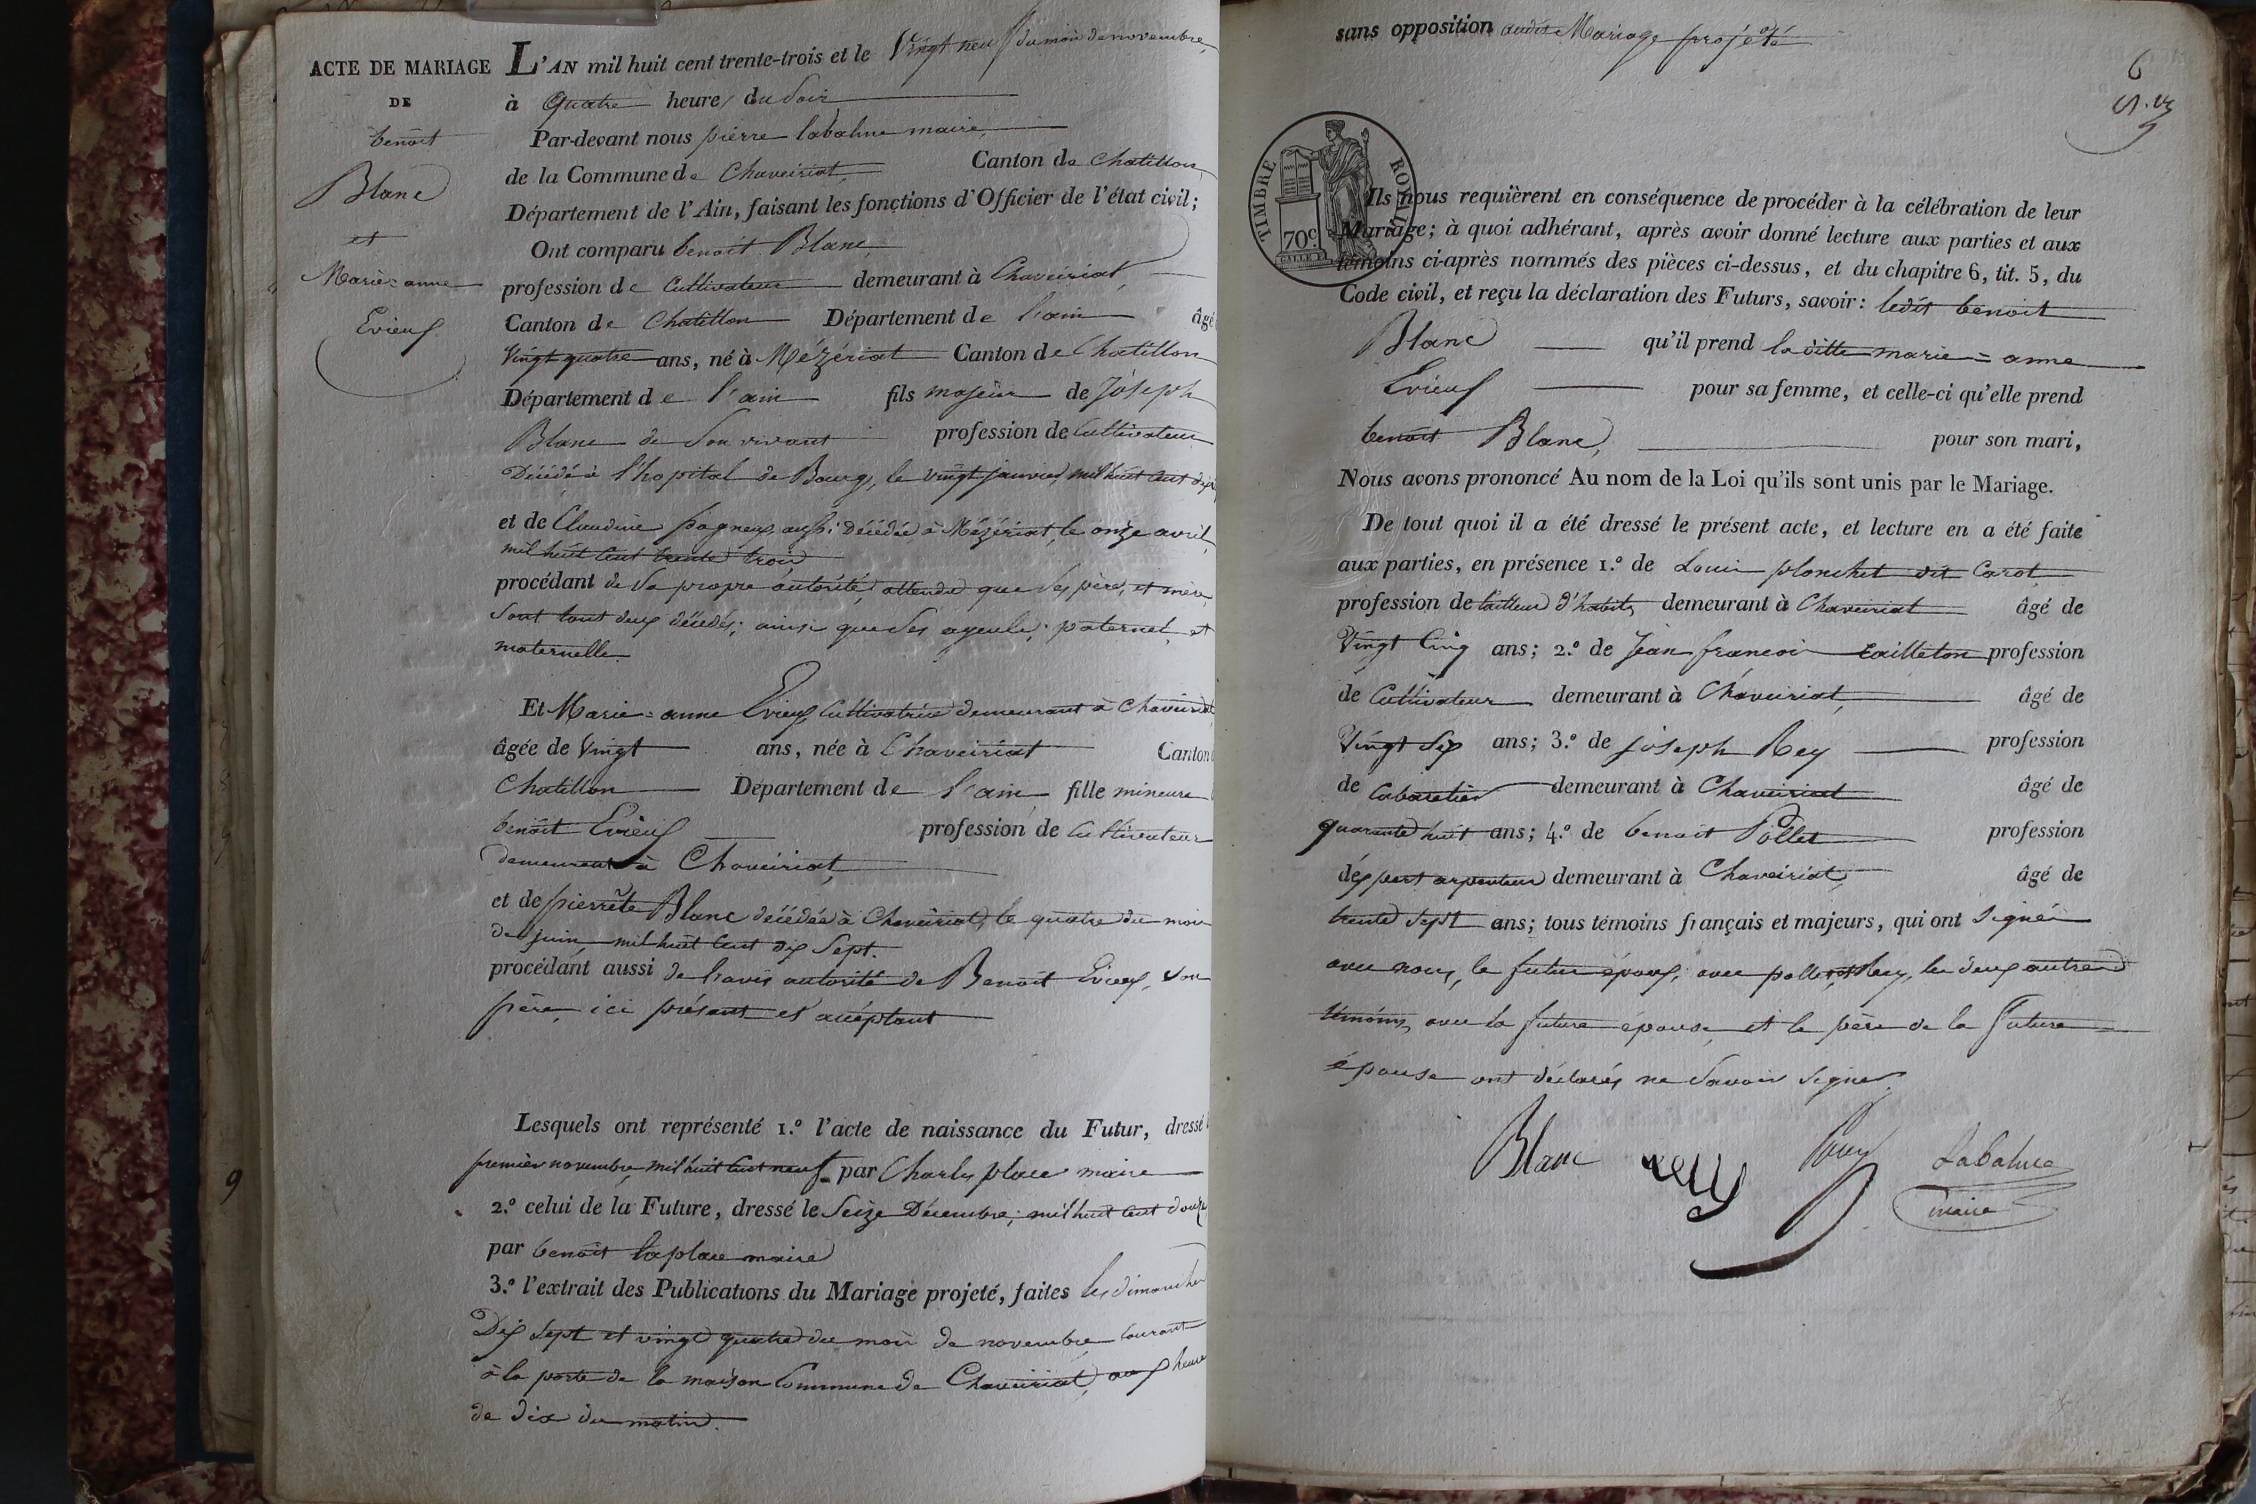 ACTE DE MARIAGE
DE
benoit
Blanc
et
Marie=anne
Evieux
L'AN mil huit cent trente-trois et le Vingt neuf du mois de novembre
à Quatre heures du Soir
Par-devant nous pierre labalme maire,
de la Commune de Chaveiriat, Canton de Chatillon,
Département de l'Ain, faisant les fonctions d'Officier de l'état civil;
Ont comparu benoit Blanc,
profession de Cultivateur demeurant à Chaveiriat,
Canton de Chatillon Département de l'ain âgé
Vingt quatre ans, né à Mézériat Canton de Chatillon
Département de l'ain fils majeur de Joseph
Blanc de Son vivant profession de Cultivateur
Décédé à l'hopital de Bourg, le vingt janvier mil huit Cent
et de Claudine aussi Décédée à Mézériat, le onze avril,
mil huit Cent trente trois
procédant de Sa propre autorité, attendu que Ses père, et mère
Sont tous deux décédés; ainsi que Ses ayeuls; paternel et
maternelle
Et Marie=anne Evieux Cultivatrice demeurant à Chaveiriat
âgée de Vingt ans, née à Chaveiriat Canton
Chatillon Département de l'ain fille mineure
benoit Evieux profession de Cultivateur
demeurant à Chaveiriat,
et de pierrette Blanc décédée à Chaveiriat, le quatre du mois
de juin, mil huit Cent dix Sept.
procédant aussi de l'avis autorité de Benoit Evieux, Son
père, ici présent et acceptant
Lesquels ont représenté 1.º l'acte de naissance du Futur, dressé
premier novembre, mil huit Cent neuf par Charles place maire
2.º celui de la Future, dressé le Seize Décembre; mil huit Cent douze
par benoit laplace maire
3.º l'extrait des Publications du Mariage projeté, faites les dimanches
Dix Sept et vingt quatre du mois de novembre Courant
à la porte de la maison Commune de Chaveiriat, aux heures
de dix du matin.
9
sans opposition audit Mariage projeté
6
TIMBRE ROYAL
70c.
Ils nous requièrent en conséquence de procéder à la célébration de leur
Mariage; à quoi adhérant, après avoir donné lecture aux parties et aux
témoins ci-après nommés des pièces ci-dessus, et du chapitre 6, tit. 5, du
Code civil, et reçu la déclaration des Futurs, savoir: ledit benoit
Blanc qu'il prend la ditte marie=anne
Evieux pour sa femme, et celle-ci qu'elle prend
benoit Blanc, pour son mari,
Nous avons prononcé Au nom de la Loi qu'ils sont unis par le Mariage.
De tout quoi il a été dressé le présent acte, et lecture en a été faite
aux parties, en présence 1.º de Louis planchet dit Carot
profession de tailleur d'habits demeurant à Chaveiriat âgé de
Vingt Cinq ans; 2.º de Jean francois Cailleton profession
de Cultivateur demeurant à Chaveiriat, âgé de
Vingt Six ans; 3.º de joseph Rey profession
de Cabaretier demeurant à Chaveiriat âgé de
quarante huit ans; 4.º de benoit Pollet profession
d'expert arpenteur demeurant à Chaveiriat, âgé de
trente Sept ans; tous témoins français et majeurs, qui ont Signés
avec nous, le futur époux, avec pollet, et Rey, les deux autres
témoins, avec la future épouse, et le père de la Future
épouse ont déclarés ne Savoir Signer.
Blanc Rey Labalme
maire